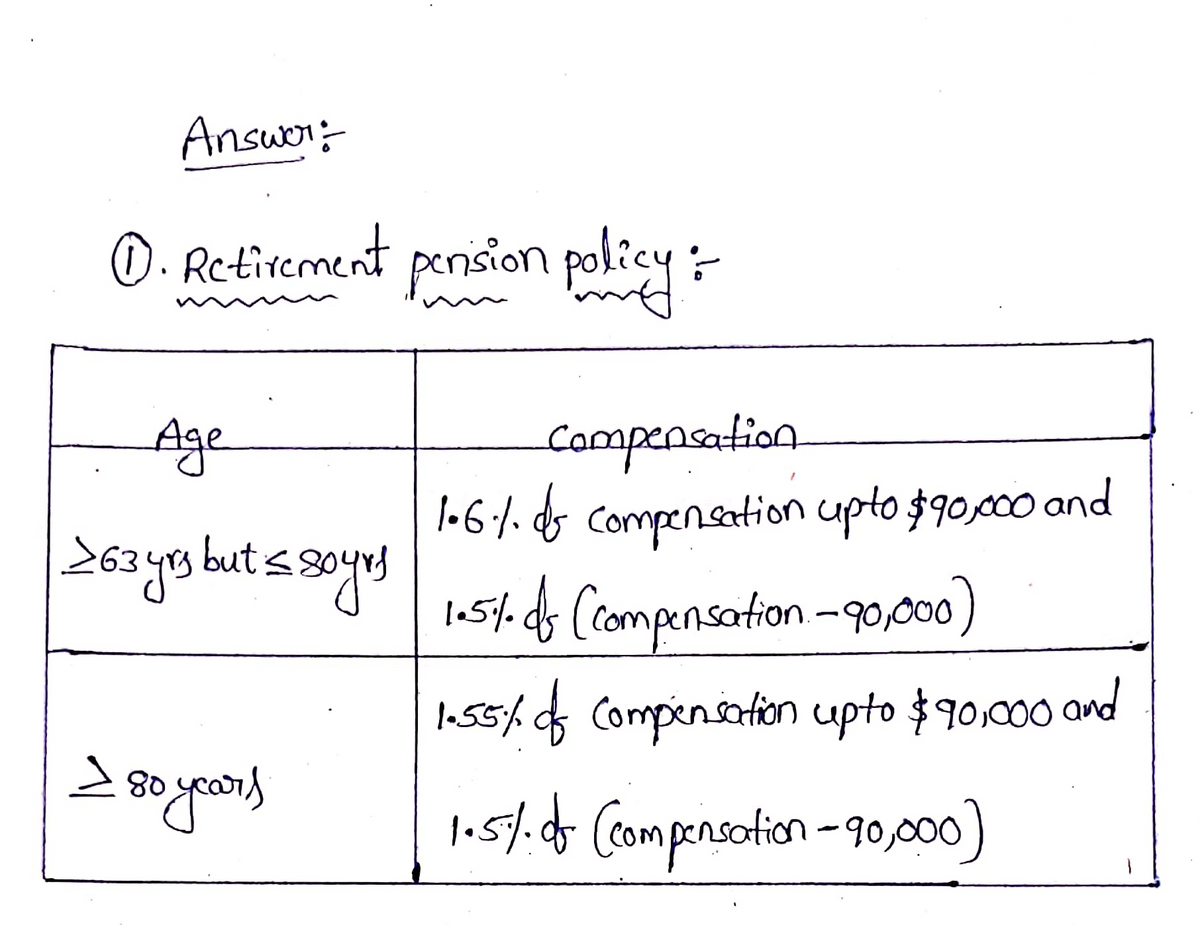 Answer:-
①. Retirement pension policy :-
Age
Compensation
≥63 yrs but ≤ 80 yrs
1.6% of compensation upto $90,000 and
1.5% of (compensation - 90,000)
≥ 80 years
1.55% of compensation upto $90,000 and
1.5% of (compensation - 90,000)